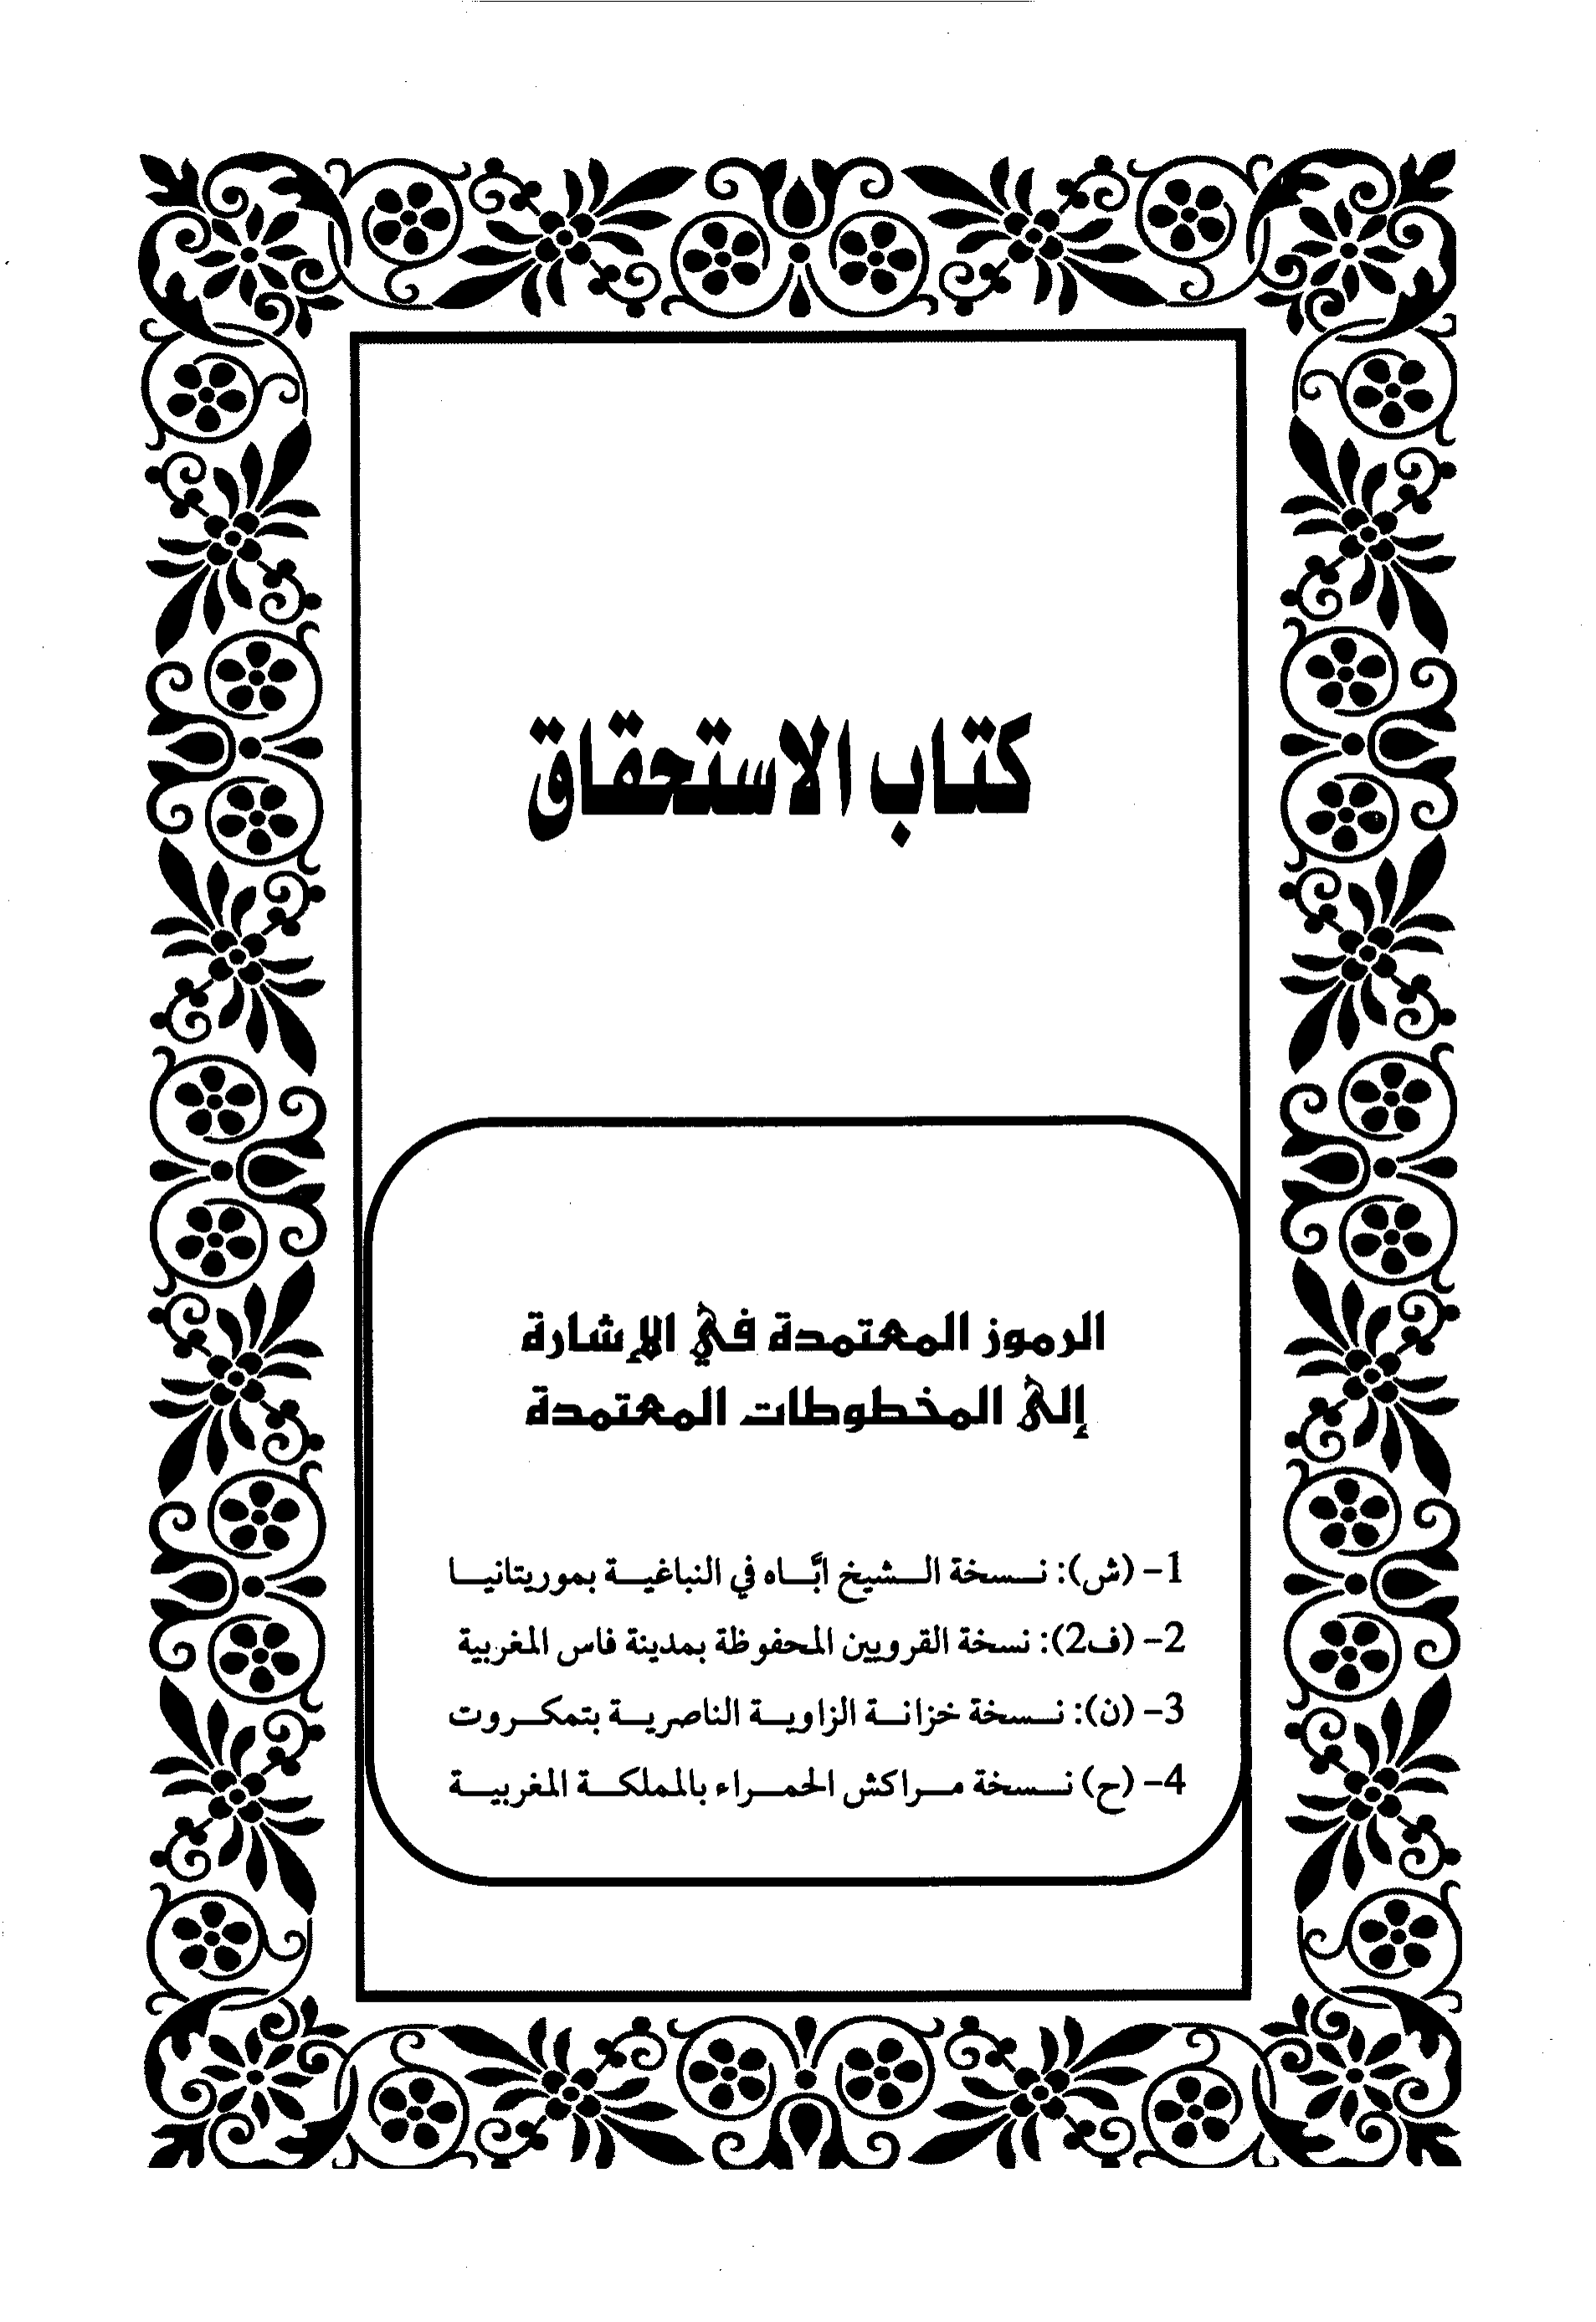 كتاب الاستحقاق
الرموز المعتمدة في الإشارة
إلى المخطوطات المعتمدة
1- (ش): نسخة الشيخ ابَّاه في النباغية بموريتانيا
2- (ف2): نسخة القرويين المحفوظة بمدينة فاس المغربية
3- (ن): نسخة خزانة الزاوية الناصرية بتمكروت
4- (ح) نسخة مراكش الحمراء بالمملكة المغربية